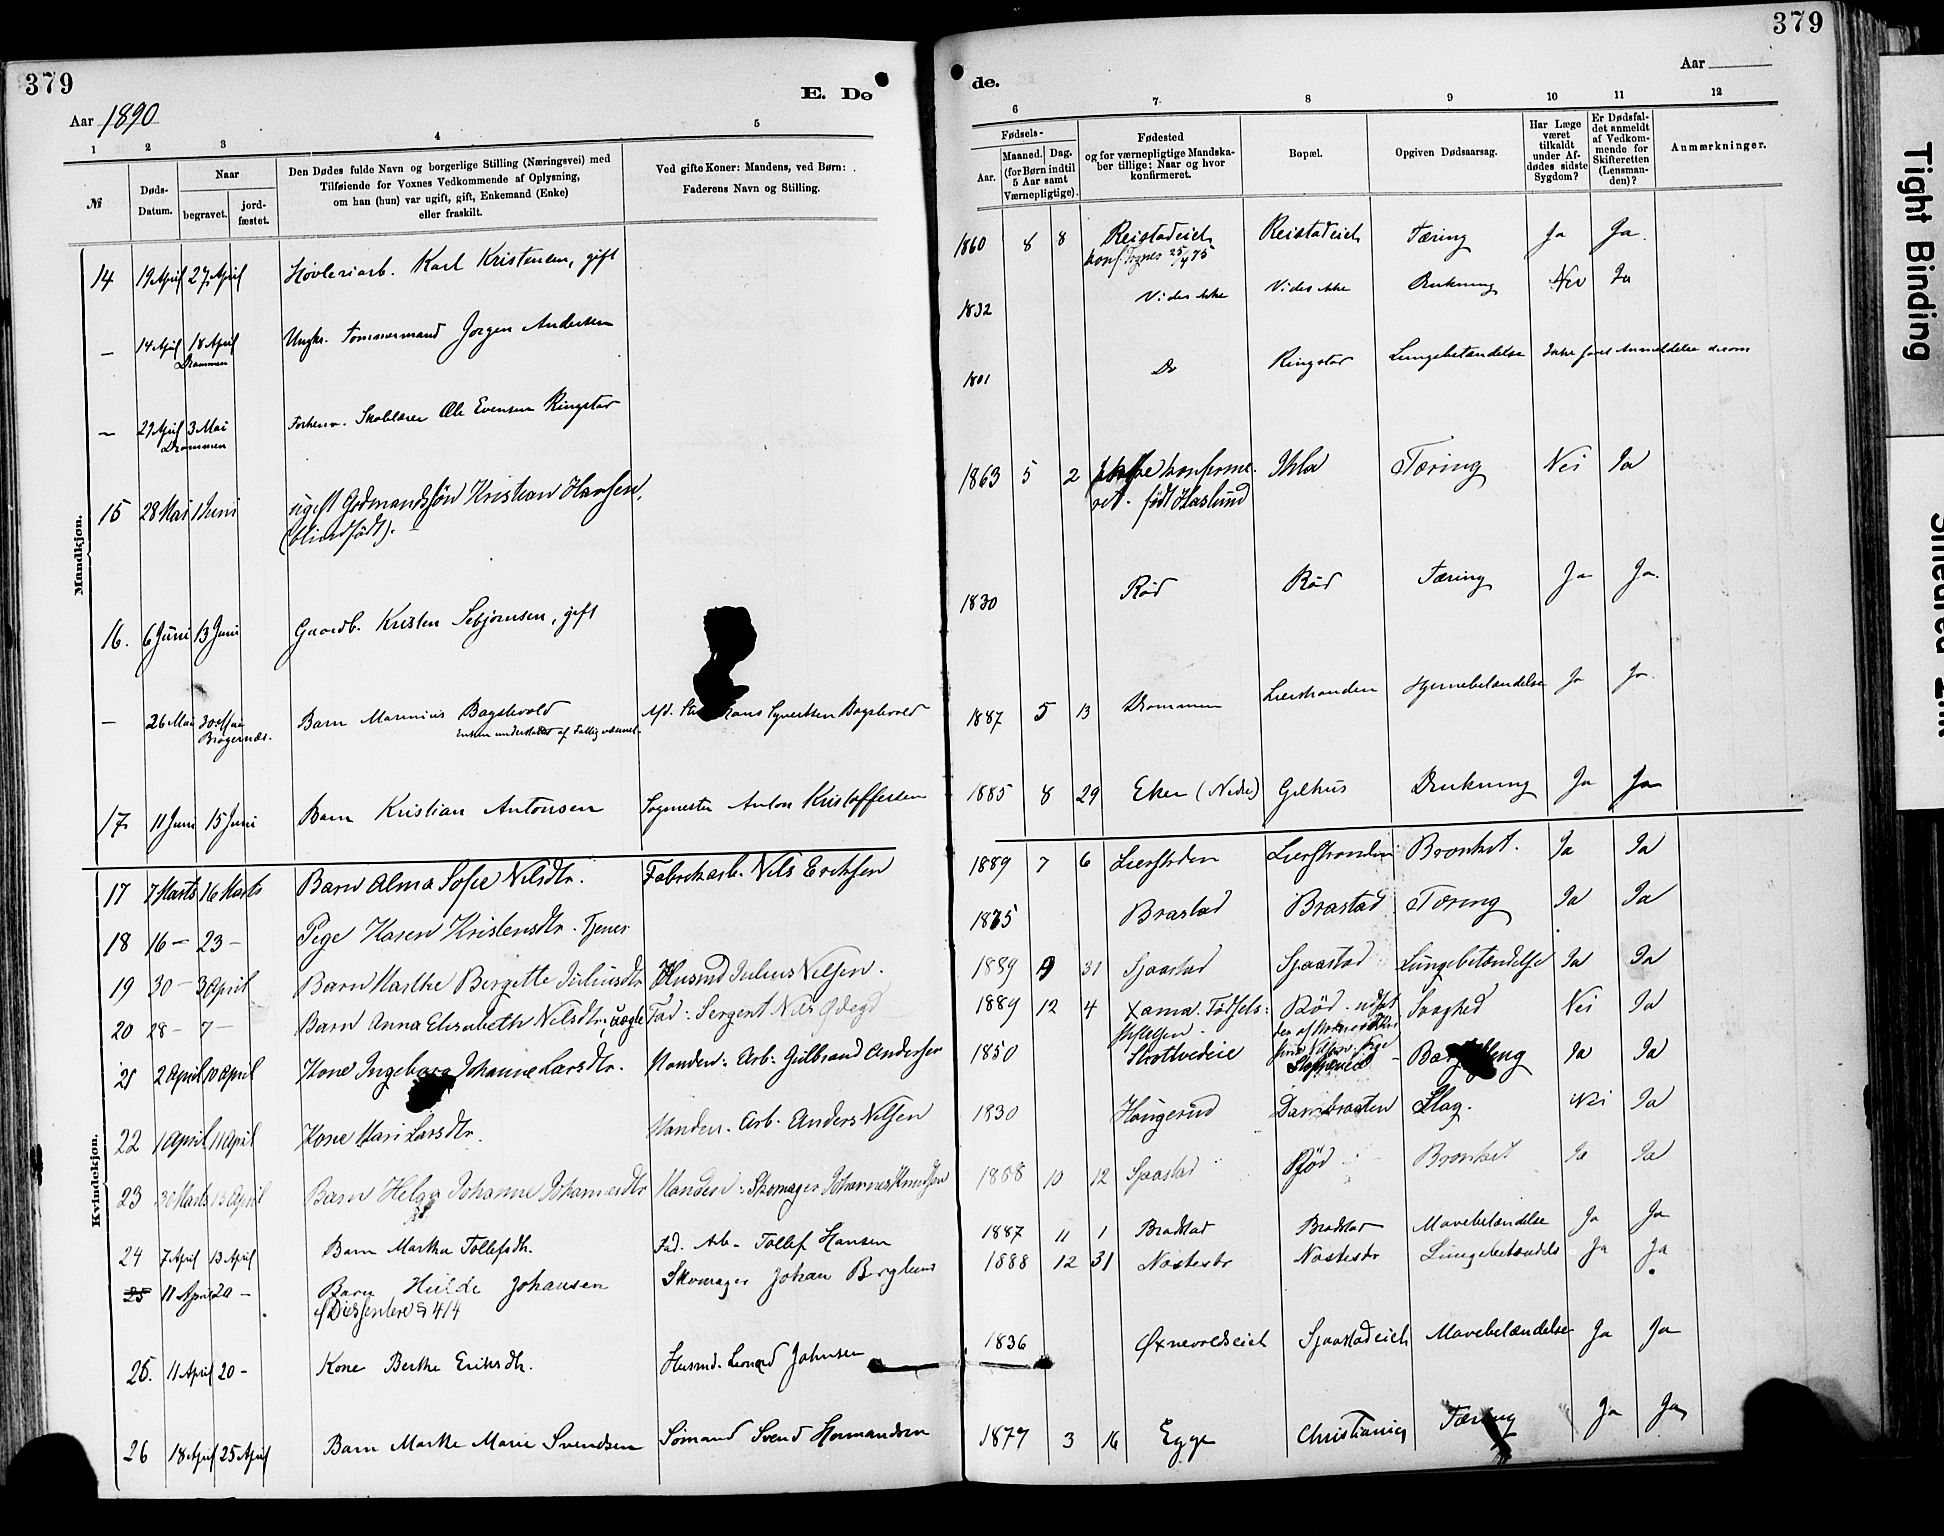 379
Aar 1890
E. Dø
1 2 3 4 5
№
Døds-
Datum.
Naar
begravet.
jord-
fæstet.
Den Dødes fulde Navn og borgerlige Stilling (Næringsvei) med
Tilføiende for Voxnes Vedkommende af Oplysning,
om han (hun) var ugift, gift, Enkemand (Enke)
eller fraskilt.
Ved gifte Koner: Mandens, ved Børn:
Faderens Navn og Stilling.
Mandkjøn.
14 19 April 27 April Høvleriarb. Karl Kristensen, gift
— 14 April 18 April Ungk. Tømmermand Jørgen Andersen
Drammen
— 29 April 3 Mai Forhenv. Skolelærer Ole Evensen Ringstad
Drammen
15 28 Mai 1 Juni ugift Gdmandssøn Kristian Hansen,
(blindfødt).
16. 6 Juni 13 Juni Gaardb. Kristen Sebjørnsen, gift
— 26 Mai 30 Mai Barn Marinius Bagstevold Afd. Hans Syvertsen Bagstevold
Bragernæs. Enken understøttet af Fattigvæsenet
17 11 Juni 15 Juni Barn Kristian Antonsen Sagmester Anton Kristoffersen
Kvindekjøn.
17 7 Marts 16 Marts Barn Alma Sofie Nilsdtr. Fabrikarb. Nils Eriksen
18 16 — 23 — Pige Karen Kristensdtr. Tjener
19 30 — 3 April Barn Marthe Bergette Juliusdtr Husmd Julius Nilsen.
20 28 — 7 — Barn Anna Elisabeth Nilsdtr, uægte Fad: Sergent Nils
21 2 April 10 April Kone Ingeborg Johanne Larsdtr. Manden: Arb: Gulbrand Andersen
22 1 April 11 April Kone Mari Larsdtr. Manden. Arb. Anders Nilsen
23 30 Marts 13 April Barn Helga Johanne Johannesdtr Manden: Skomager Johannes Knudsen
24 7 April 13 April Barn Marthe Tollefsdtr. Fad. Arb. Tollef Hansen
25 11 April 20 — Barn Hulde Johansen Skomager Johan Berglund
(Dissentere § 414
25. 11 April 20 — Kone Berthe Eriksdtr. Husmd. Leonard Johnsen
26 18 April 25 April Barn Marthe Marie Svendsen Sømand Svend Hermansen
379
Aar
de.
6 7. 8 9 10 11 12
Fødsels-
Aar.
Maaned. Dag.
(for Børn indtil
5 Aar samt
Værnepligtige).
Fødested
og for værnepligtige Mandska-
ber tillige: Naar og hvor
konfirmeret.
Bopæl.
Opgiven Dødsaarsag.
Har Læge
været
tilkaldt
under Af-
dødes sidste
Sygdom?
Er Dødsfal-
det anmeldt
af Vedkom-
mende for
Skifteretten
(Lensman-
den)?
Anmærkninger.
1860 8 8 Reistadeich Reistadeich Tæring Ja Ja.
konf. 25/4 75
1832 Vides ikke Vides ikke Drukning Nei Ja
1801 Do Ringstad Lungebetændelse Ikke faaet Anmeldelse derom
1863 5 2 ikke konfirme- Tæring Nei Ja
ret. født Haslund
1830 Rød Rød Tæring Ja Ja.
1887 5 13 Drammen Lierstranden Hjernebetændelse Ja Ja.
1885 8 29 Eker (Nedre) Gilhus Drukning Ja Ja
1889 7 6 Lierstrden Lierstranden Bronkit. Ja Ja
1875 Brastad Brastad Tæring Ja Ja
1889 9 31 Sjaastad Sjaastad Lungebetændelse Ja Ja
1889 12 4 Xania Fødsels- Rød Svaghed Nei Ja
stiftelsen.
1850 Ja Ja
1830 Haugerud Dambraaten Slag. Nei Ja
1888 10 12 Sjaastad Rød Bronkit Ja Ja
1887 11 1 Brastad Brastad Mavebetændelse Ja Ja
1888 12 31 Nøstebr Nøstebr Lungebetændelse Ja Ja
1836 Øxnevoldseich Sjaastadeich Mavebetændelse Ja Ja
1877 3 16 Egge Christiania Tæring Ja Ja
Tight Binding